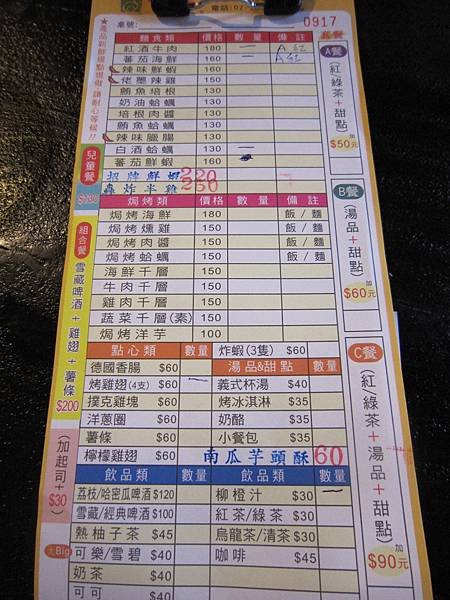 電話：02
桌號：
0917
套餐
★產品新鮮現點現做 請耐心等候!!
麵食類 價格 數量 備註
紅酒牛肉 180 一 A紅
番茄海鮮 160 一 A紅
辣味鮮蝦 160
佬墨辣雞 150
鮪魚培根 130
奶油蛤蠣 130
培根肉醬 130
鮪魚蛤蠣 130
辣味臘腸 130
白酒蛤蠣 130 一
番茄鮮蝦 160
招牌鮮蝦 220
轟炸半雞 250
焗烤類 價格 數量 備註
焗烤海鮮 180 飯/麵
焗烤燻雞 150 飯/麵
焗烤肉醬 150 飯/麵
焗烤蛤蠣 150 飯/麵
海鮮千層 150
牛肉千層 150
雞肉千層 150
蔬菜千層(素) 150
焗烤洋芋 100
點心類 數量
德國香腸 $60
烤雞翅(4支) $60 一
撲克雞塊 $60
洋蔥圈 $60
薯條 $60
檸檬雞翅 $60
炸蝦(3隻) $60
湯品&甜點 數量
義式杯湯 $40
烤冰淇淋 $35
奶酪 $35
小餐包 $35
南瓜芋頭酥 60
飲品類 數量
荔枝/哈密瓜啤酒 $120
雪藏/經典啤酒 $100
熱柚子茶 $45
可樂/雪碧 $40
奶茶 $40
可可 $40
飲品類 數量
柳橙汁 $30 一
紅茶/綠茶 $30
烏龍茶/清茶 $30
咖啡 $45
兒童餐
$130
組合餐
雪藏啤酒+雞翅+薯條
$200
(加起司+$30)
大Big
A餐
(紅/綠茶+甜點)
加
$50元
B餐
(湯品+甜點)
加
$60元
C餐
(紅/綠茶+湯品+甜點)
加
$90元